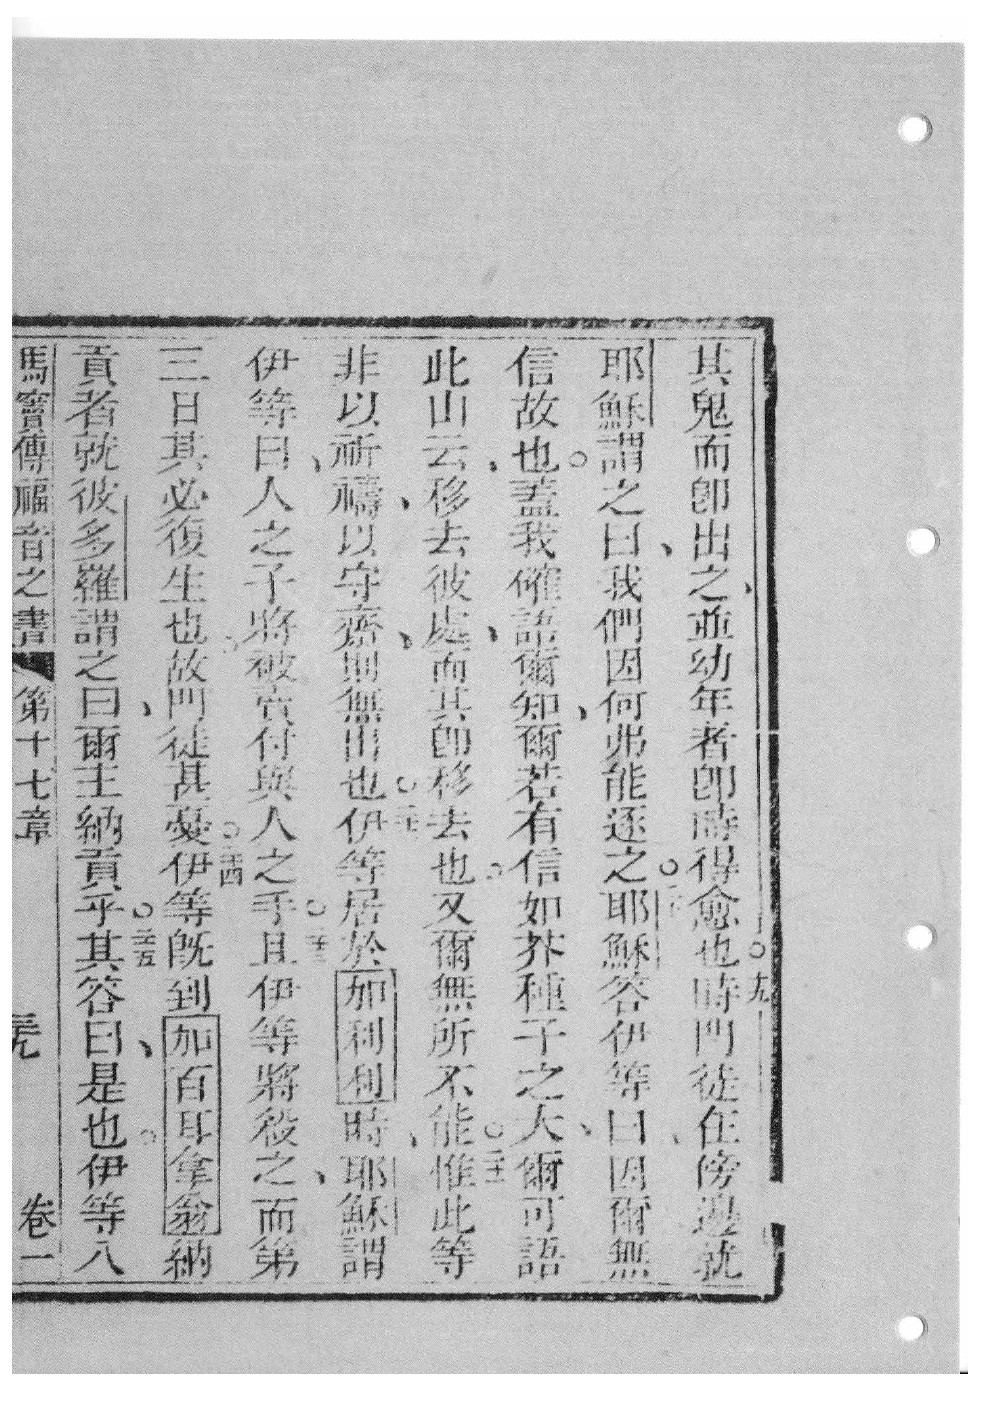 其鬼而卽出之、並幼年者卽時得愈也○十九時門徒在傍邊就
耶穌謂之曰、我們因何弗能逐之○二十耶穌答伊等曰、因爾無
信故也○蓋我確語爾知、爾若有信如芥種子之大、爾可語
此山云、移去彼處、而其卽移去也○又爾無所不能○二十一惟此等
非以祈禱、以守齋、則無出也○二十二伊等居於加利利時、耶穌謂
伊等曰、人之子將被賣付與人之手○二十三且伊等將殺之、而第
三日其必復生也○故門徒甚憂○二十四伊等旣到加百耳拿翁、納
貢者就彼多羅謂之曰、爾主納貢乎○二十五其答曰、是也○伊等入
馬竇傳福音之書 第十七章 卷一